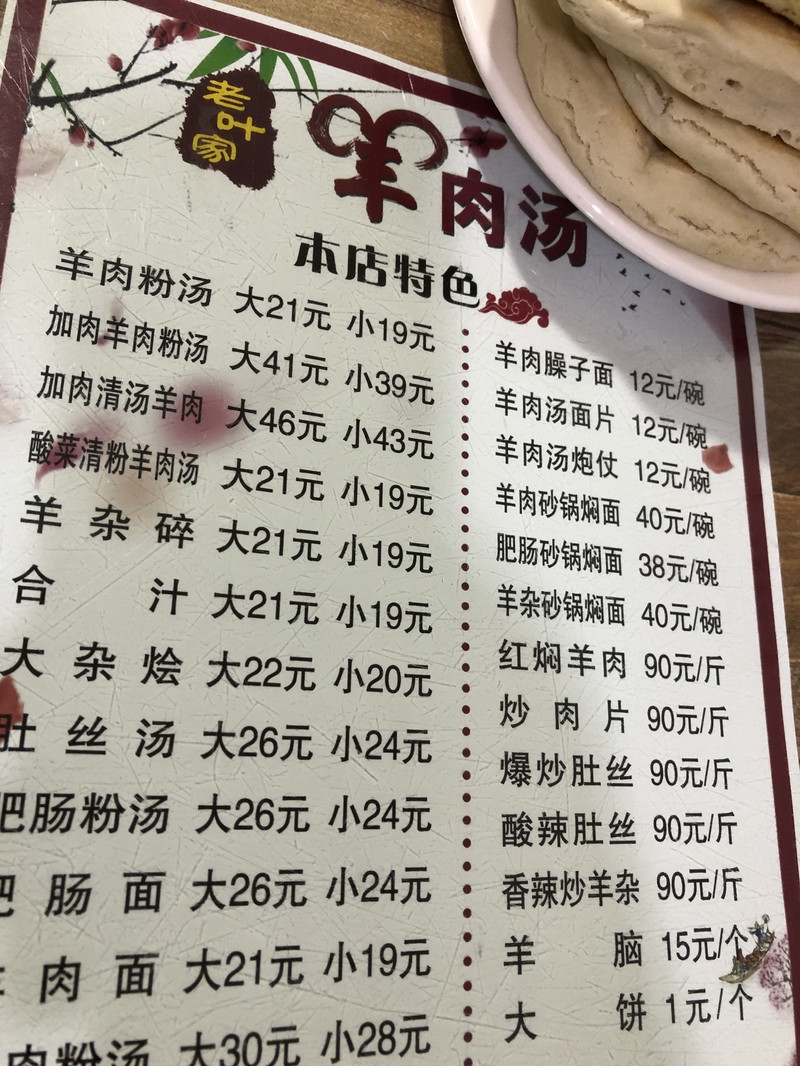 老叶家
羊肉汤
本店特色
羊肉粉汤 大21元 小19元
加肉羊肉粉汤 大41元 小39元
加肉清汤羊肉 大46元 小43元
酸菜清粉羊肉汤 大21元 小19元
羊杂碎 大21元 小19元
合汁 大21元 小19元
大杂烩 大22元 小20元
肚丝汤 大26元 小24元
肥肠粉汤 大26元 小24元
肥肠面 大26元 小24元
羊肉面 大21元 小19元
肉粉汤 大30元 小28元
羊肉臊子面 12元/碗
羊肉汤面片 12元/碗
羊肉汤炮仗 12元/碗
羊肉砂锅焖面 40元/碗
肥肠砂锅焖面 38元/碗
羊杂砂锅焖面 40元/碗
红焖羊肉 90元/斤
炒肉片 90元/斤
爆炒肚丝 90元/斤
酸辣肚丝 90元/斤
香辣炒羊杂 90元/斤
羊脑 15元/个
大饼 1元/个